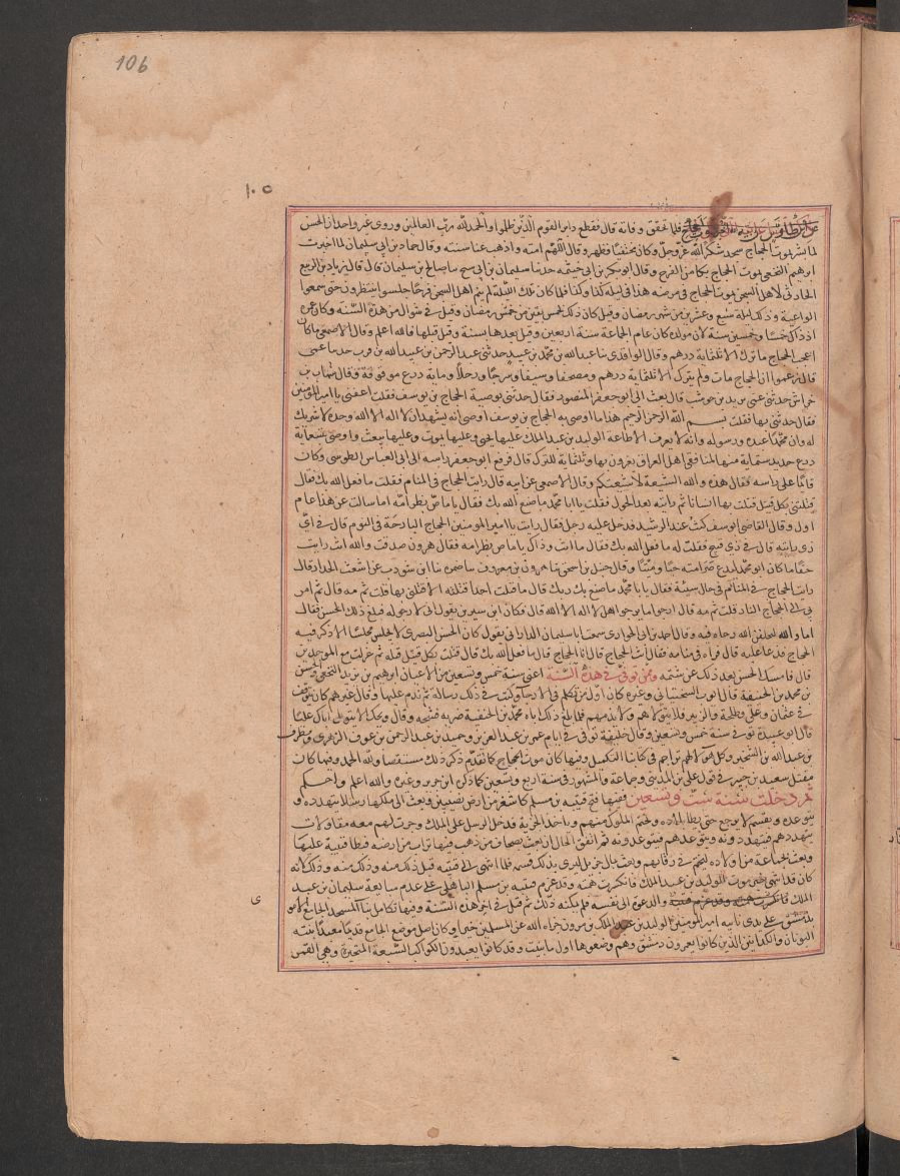 106
١٠٥
فلما تحقق وفاته قال فقطع دابر القوم الذين ظلموا والحمد لله رب العالمين وروى غير واحد ان الحسن
لما بشر بموت الحجاج سجد شكرا لله عز وجل وكان مختفيا فظهر وقال اللهم امته واذهب عنا سنته وقال حماد بن ابي سليمان لما اخبرت
ابرهيم النخعي بموت الحجاج بكا من الفرح وقال ابو بكر بن ابي خيثمه حدثنا سليمان بن ابي شيخ ثنا صالح بن سليمان قال قال زياد بن الربيع
الحارثي لاهل السجن يموت الحجاج في مرضه هذا في ليلة كذا وكذا فلما كان تلك الليلة لم ينم اهل السجن فرحا جلسوا ينتظرون حتى سمعوا
الواعية وذلك ليلة سبع وعشرين من شهر رمضان وقيل كان ذلك لخمس بقين من رمضان وقيل في شوال من هذه السنة وكان عمره
اذ ذاك خمسا وخمسين سنة لان مولده كان عام الجماعة سنة اربعين وقيل بعدها بسنة وقيل قبلها فالله اعلم وقال الاصمعي ما كان
اعجب الحجاج ما ترك الا ثلثماية درهم وقال الواقدي ثنا عبد الله بن محمد بن عبيد حدثني عبد الرحمن بن عبيد الله بن قرب حدثنا عمي
قال زعموا ان الحجاج مات ولم يترك الا ثلثماية درهم ومصحفا وسيفا وسرجا ورحلا وماية درع موقوفة وقال شهاب بن
خراش حدثني عمي يزيد بن حوشب قال بعث الي ابو جعفر المنصور فقال حدثني بوصية الحجاج بن يوسف فقلت اعفني يا امير المؤمنين
فقال حدثني بها فقلت بسم الله الرحمن الرحيم هذا ما اوصى به الحجاج بن يوسف اوصى انه يشهد ان لا اله الا الله وحده لا شريك
له وان محمدا عبده ورسوله وانه لا يعرف الا طاعة الوليد بن عبد الملك عليها يحيى وعليها يموت وعليها يبعث واوصى بتسعماية
درع حديد ستماية منها لمنافقي اهل العراق يغزون بها وثلثماية للترك قال فرفع ابو جعفر راسه الى ابي العباس الطوسي وكان
قائما على راسه فقال هذه والله الشيعة لا شيعتكم وقال الاصمعي عن ابيه قال رايت الحجاج في المنام فقلت ما فعل الله بك فقال
قتلني بكل قتيل قتلت بها انسانا ثم رايته بعد الحول فقلت يا ابا محمد ما صنع الله بك فقال يا ماص بظر امه اما سالت عن هذا عام
اول وقال القاضي ابو يوسف كنت عند الرشيد فدخل عليه رجل فقال رايت يا امير المومنين الحجاج البارحة في النوم قال في اي
زي رايته قال في زي قبيح فقلت له ما فعل الله بك فقال ما انت وذاك يا ماص بظر امه فقال هرون صدقت والله انت رايت
حقا ما كان ابو محمد ليدع صرامته حيا وميتا وقال حنبل بن اسحق ثنا هرون بن معروف ثنا ضمرة ثنا ابن شوذب عن اشعث الحداد قال
رايت الحجاج في المنام في حال سيئة فقال يا ابا محمد ما صنع بك ربك قال ما قتلت احدا قتلة الا قتلني بها قلت ثم مه قال ثم امر
بي الى النار قلت ثم مه قال ارجو ما يرجوا اهل لا اله الا الله قال فكان ابن سيرين يقول اني لارجو له فبلغ ذلك الحسن فقال
اما والله ليخلفن الله رجاه فيه وقال احمد بن ابي الحواري سمعت ابا سليمان الداراني يقول كان الحسن البصري لا يجلس مجلسا الا ذكر فيه
الحجاج فدعا عليه قال فرآه في منامه فقال انت الحجاج قال انا الحجاج قال ما فعل الله بك قال قتلت بكل قتيل قتله ثم عزلت مع الموحدين
قال فامسك الحسن بعد ذلك عن شتمه وممن توفي في هذه السنة اعني سنة خمس وتسعين من الاعيان ابرهيم بن يزيد النخعي الحسن
بن محمد بن الحنفية قال ايوب السختياني وغيره كان اول من تكلم في الارجا وكتب في ذلك رسالة ثم ندم عليها وقال غيرهم كان يتوقف
في عثمان وعلي وطلحة والزبير فلا يتولاهم ولا يذمهم فلما بلغ ذلك اباه محمد بن الحنفية ضربه فشجه وقال ويحك الا تتولى اباك عليا
قال ابو عبيد توفي سنة خمس وتسعين وقال خليفة توفي في ايام عمر بن عبد العزيز وحميد بن عبد الرحمن بن عوف الزهري ومطرف
بن عبد الله بن الشخير وكل هؤلاء لهم تراجم في كتابنا التكميل وفيها كان موت الحجاج كما تقدم ذكر ذلك مستقصا ولله الحمد وفيها كان
مقتل سعيد بن جبير في قول علي بن المديني وجماعة والمشهور في سنة اربع وتسعين كما ذكره ابن جرير وغيره والله اعلم واحكم
ثم دخلت سنة ست وتسعين ففيها فتح قتيبه بن مسلم كاشغر من ارض الصين وبعث الى ملكها رسلا يتهدده و
يتوعده ويقسم لا يرجع حتى يطا بلاده ويختم الملوك منهم وياخذ الجزية فدخل الرسل على الملك وجرت لهم معه مقاولات
يتهددهم فتهددونه ويتوعدهم فيتوعدونه ثم اتفق الحال ان بعث بصحاف من ذهب فيها تراب من ارضه فيطا قتيبة عليها
وبعث بجماعة من اولاده ليختم في رقابهم وبعث بمال جزيل ليبري بذلك قسمه فلما انتهى الى قتيبه قبل ذلك منه وذلك لانه
كان قد انتهى خبر موت الوليد بن عبد الملك فانكسرت همته وقد عزم قتيبه بن مسلم الباهلي على عدم مبايعة سليمان بن عبد
الملك والدعوة الى نفسه فلم يمكنه ذلك ثم قتل في اخر هذه السنة وفيها تكامل بنا المسجد الجامع الاموي
بدمشق على يدي بانيه امير المؤمنين الوليد بن عبد الملك بن مرون جزاه الله عن المسلمين خيرا وكان اصل موضع الجامع قديما معبدا بنته
اليونان والكلدانيين الذين كانوا يعمرون دمشق وهم وضعوها اول ما بنيت وقد كانوا يعبدون الكواكب السبعة المتحيرة وهي القمر